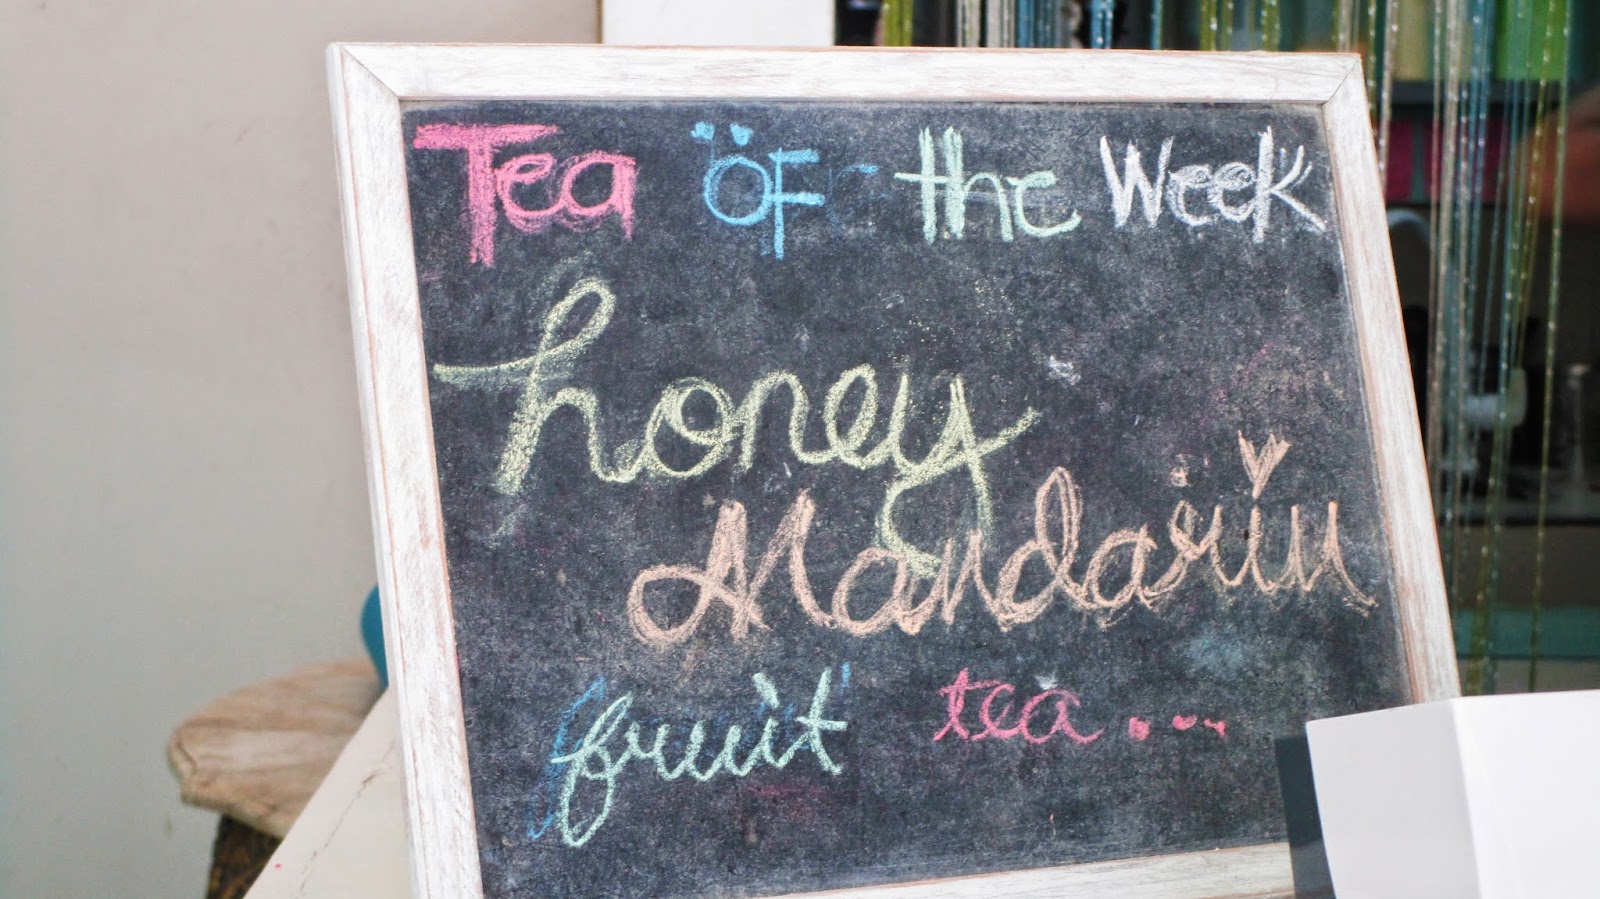 Tea of the Week
honey
Mandarin
fruit tea...